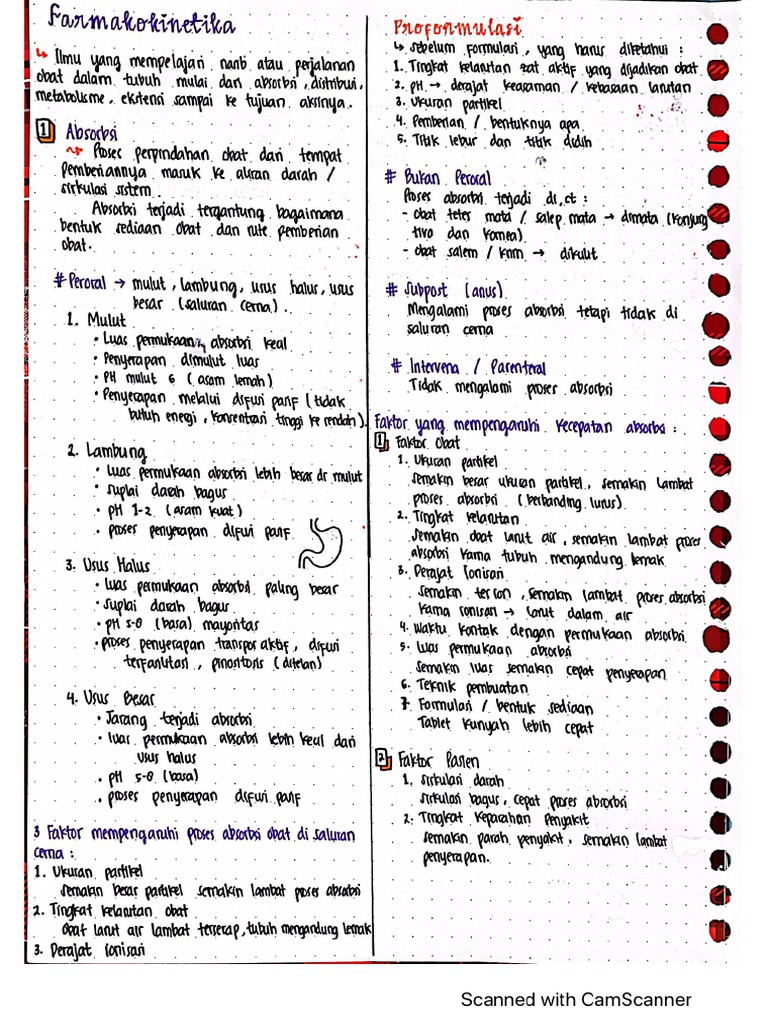 Farmakokinetika
↳ Ilmu yang mempelajari nasib atau perjalanan
obat dalam tubuh mulai dari absorbsi, distribusi,
metabolisme, ekstensi sampai ke tujuan aksinya.
1 Absorbsi
↝ Proses perpindahan obat dari tempat
Pemberiannya masuk ke aliran darah /
sirkulasi sistem.
Absorbsi terjadi tergantung bagaimana
bentuk sediaan obat dan rute pemberian
obat.
# Peroral → mulut, lambung, usus halus, usus
besar (saluran cerna).
1. Mulut
• Luas permukaan absorbsi kecil
• Penyerapan dimulut luas
• PH mulut 6 (asam lemah)
• Penyerapan melalui difusi pasif (tidak
butuh energi, konsentrasi tinggi ke rendah).
2. Lambung
• luas permukaan absorbsi lebih besar dr mulut
• suplai darah bagus
• pH 1-2 (asam kuat)
• proses penyerapan difusi pasif
3. Usus Halus
• luas permukaan absorbsi paling besar
• suplai darah bagus
• pH 5-8 (basa) mayoritas
• proses penyerapan transpor aktif, difusi
terfasilitasi, pinositosis (ditelan)
4. Usus Besar
• Jarang terjadi absorbsi
• luas permukaan absorbsi lebih kecil dari
usus halus
• pH 5-8 (basa)
• proses penyerapan difusi pasif
3 Faktor mempengaruhi proses absorbsi obat di saluran
cerna :
1. Ukuran partikel
semakin besar partikel semakin lambat proses absorbsi
2. Tingkat kelarutan obat
Obat larut air lambat terserap, tubuh mengandung lemak
3. Derajat ionisasi
Proformulasi
↳ sebelum formulasi, yang harus diketahui :
1. Tingkat kelarutan zat aktif yang dijadikan obat
2. pH → derajat keasaman / kebasaan larutan
3. Ukuran partikel
4. Pemberian / bentuknya apa
5. Titik lebur dan titik didih
# Bukan Peroral
Proses absorbsi terjadi di, ct :
- obat tetes mata / salep mata → dimata (konjung
tivo dan kornea).
- obat salem / krim → dikulit
# Subpost (anus)
Mengalami proses absorbsi tetapi tidak di
saluran cerna
# Intervena / Parenteral
Tidak mengalami proses absorbsi
Faktor yang mempengaruhi kecepatan absorbsi :
1 Faktor Obat
1. Ukuran partikel
semakin besar ukuran partikel, semakin lambat
proses absorbsi (berbanding lurus).
2. Tingkat kelarutan
semakin obat larut air, semakin lambat proses
absorbsi karna tubuh mengandung lemak
3. Derajat Ionisasi
semakin terion, semakin lambat proses absorbsi
karna ionisasi → larut dalam air
4. Waktu kontak dengan permukaan absorbsi
5. Luas permukaan absorbsi
semakin luas semakin cepat penyerapan
6. Teknik pembuatan
7. Formulasi / bentuk sediaan
Tablet kunyah lebih cepat
2 Faktor Pasien
1. sirkulasi darah
sirkulasi bagus, cepat proses absorbsi
2. Tingkat Keparahan Penyakit
semakin parah penyakit, semakin lambat
penyerapan.
Scanned with CamScanner